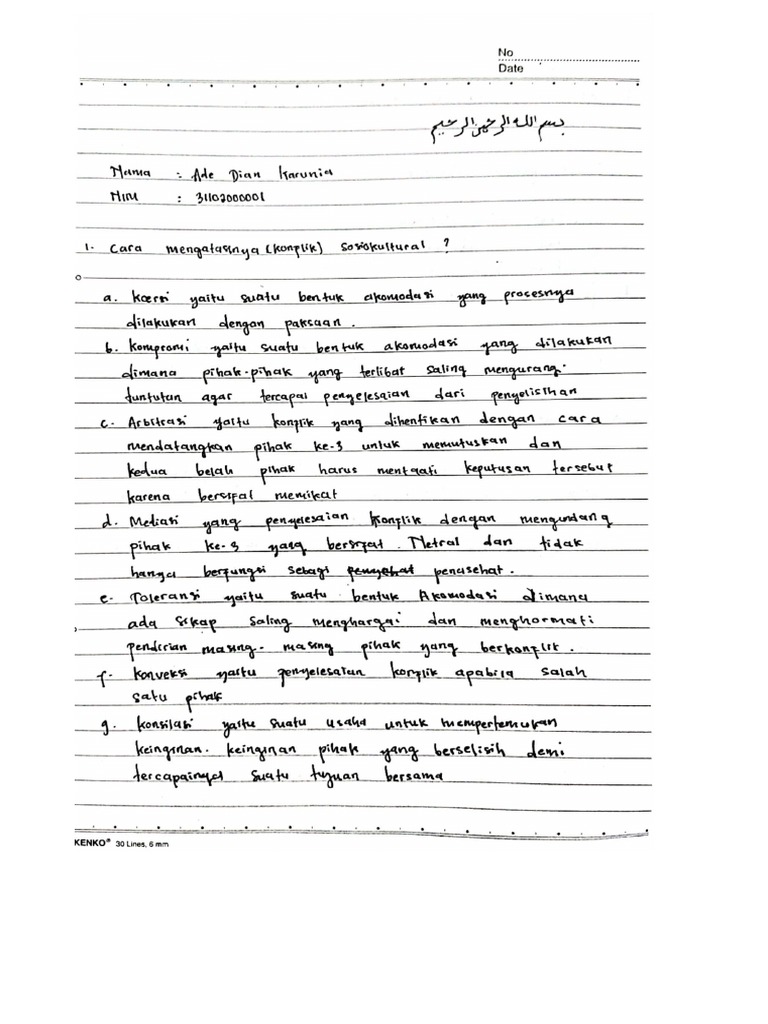 No
Date
بسم الله الرحمن الرحيم
Nama : Ade Dian Karunia
NIM : 31102000001
1. Cara mengatasinya (konflik) sosiokultural ?
a. Koersi yaitu suatu bentuk akomodasi yang procesnya
dilakukan dengan paksaan.
b. Kompromi yaitu suatu bentuk akomodasi yang dilakukan
dimana pihak-pihak yang terlibat saling mengurang-
tuntutan agar tercapai penyelesaian dari penyelisihan
c. Arbitrasi yaitu konflik yang dihentikan dengan cara
mendatangkan pihak ke-3 untuk memutuskan dan
kedua belah pihak harus mentaati keputusan tersebut
karena bersifat memikat
d. Mediasi yang penyelesaian konflik dengan mengundang
pihak ke-3 yang bersifat. Netral dan tidak
hanya berfungsi sebagi penasehat.
e. Toleransi yaitu suatu bentuk Akomodasi dimana
ada sikap saling menghargai dan menghormati
pendirian masing-masing pihak yang berkonflik.
f. Konveksi yaitu penyelesaian konflik apabila salah
satu pihak
g. Konsilasi yaitu suatu usaha untuk mempertemukan
keinginan-keinginan pihak yang berselisih demi
tercapainya suatu tujuan bersama
KENKO® 30 Lines, 6 mm